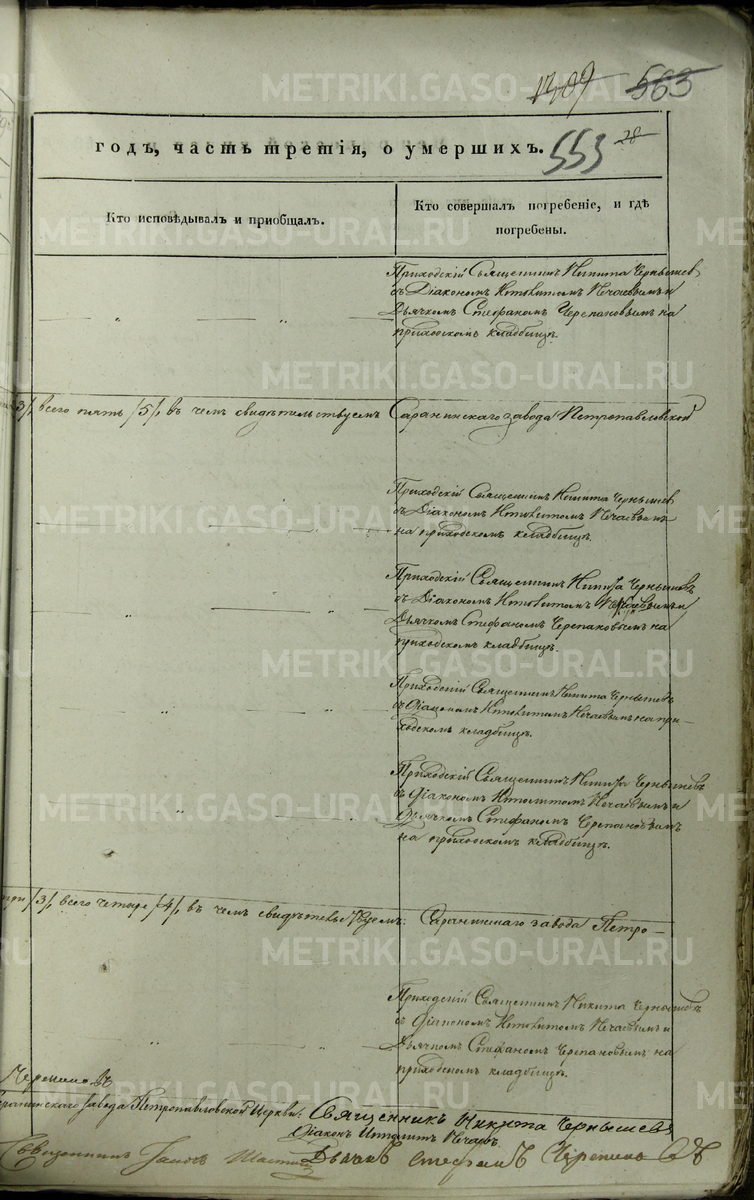 1309 563
годъ, часть третія, о умершихъ. 553 28
Кто исповѣдывалъ и приобщалъ.
Кто совершалъ погребеніе, и гдѣ
погребены.
Приходскій Священникъ Никита Чернышев
съ Діакономъ Ипполитомъ Нечаевымъ и
Дьячкомъ Стефаномъ Черепановымъ на
приходскомъ кладбищѣ.
3/, всего пять /5/, въ чемъ свидѣтельствуемъ Саранинскаго завода Петропавловской
Приходскій Священникъ Никита Чернышев
съ Діакономъ Ипполитомъ Нечаевымъ
на приходскомъ кладбищѣ.
Приходскій Священникъ Никита Чернышевъ
съ Діакономъ Ипполитомъ Нечаевымъ и
Дьячкомъ Стефаномъ Черепановымъ на
приходскомъ кладбищѣ.
Приходскій Священникъ Никита Чернышевъ
съ Діакономъ Ипполитомъ Нечаевымъ на при-
ходскомъ кладбищѣ.
Приходскій Священникъ Никита Чернышевъ
съ Діакономъ Ипполитомъ Нечаевымъ и
Дьячкомъ Стефаномъ Черепановымъ
на приходскомъ кладбищѣ.
три /3/, всего четыре /4/, въ чемъ свидѣтельствуемъ: Саранинскаго завода Петро-
Приходскій Священникъ Никита Чернышевъ
съ Діакономъ Ипполитомъ Нечаевымъ и
Дьячкомъ Стефаномъ Черепановымъ на
приходскомъ кладбищѣ.
Саранинскаго завода Петропавловской Церкви: Священникъ Никита Чернышевъ
Діаконъ Ипполитъ Нечаевъ
Дьячекъ Стефанъ Черепановъ
METRIKI.GASO-URAL.RU